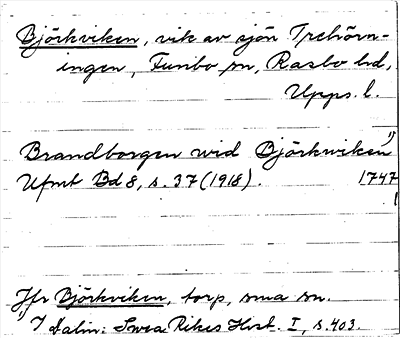 Björkviken, vik av sjön Trehörn-
ingen, Funbo sn, Rasbo hd,
Upps. l.
Brandborgen wid Björkwiken 1)
Ufmt Bd 8, s. 37 (1918). 1747
Jfr Björkviken, torp, sma sn.
1) Dalin: Svea Rikes Hist. I, s. 403.